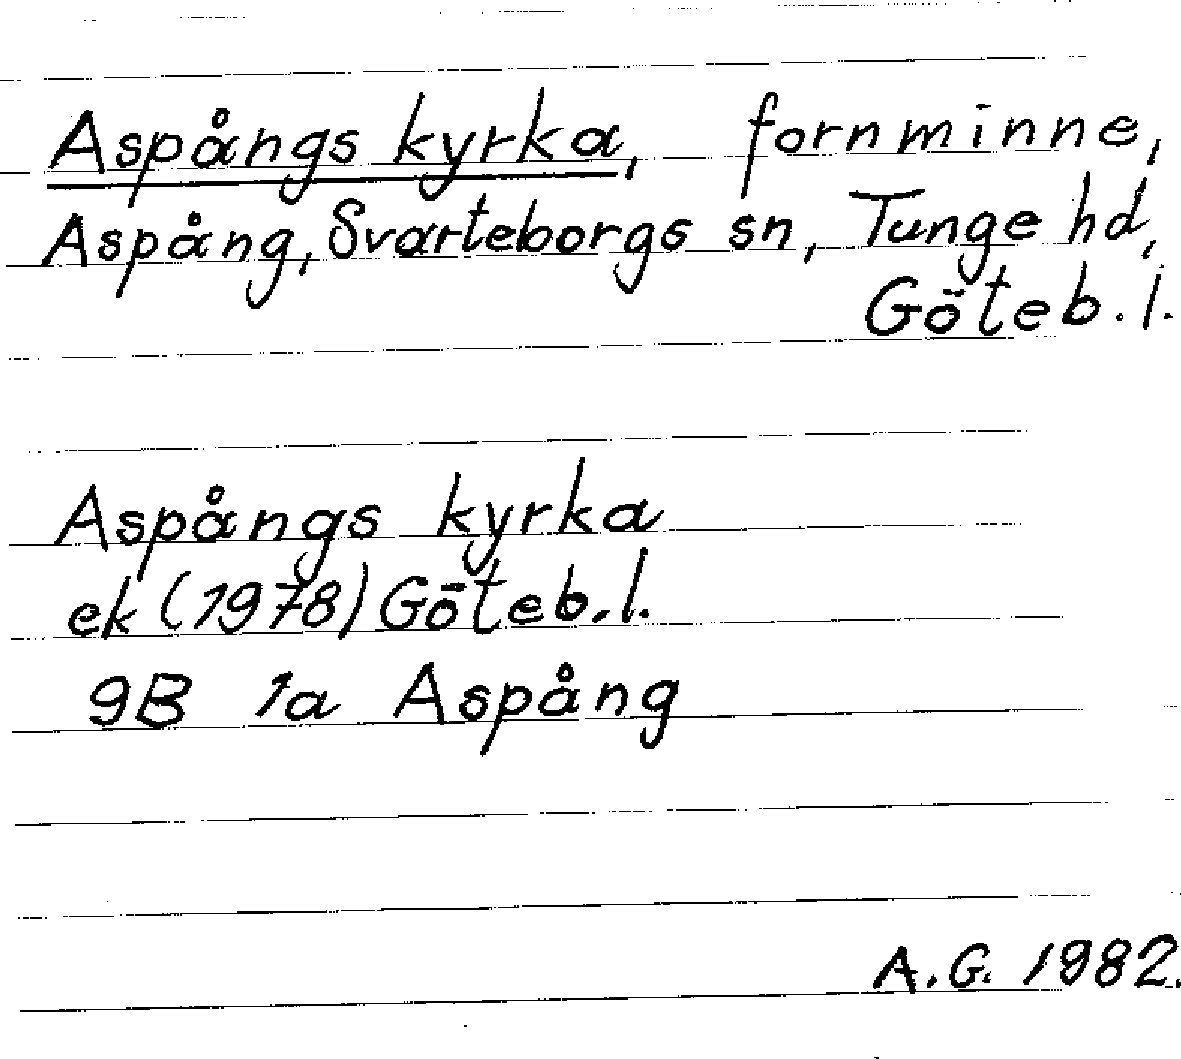 Aspångs kyrka, fornminne,
Aspång, Svarteborgs sn, Tunge hd,
Göteb. l.
Aspångs kyrka
ek (1978) Göteb. l.
9B 1a Aspång
A.G. 1982.